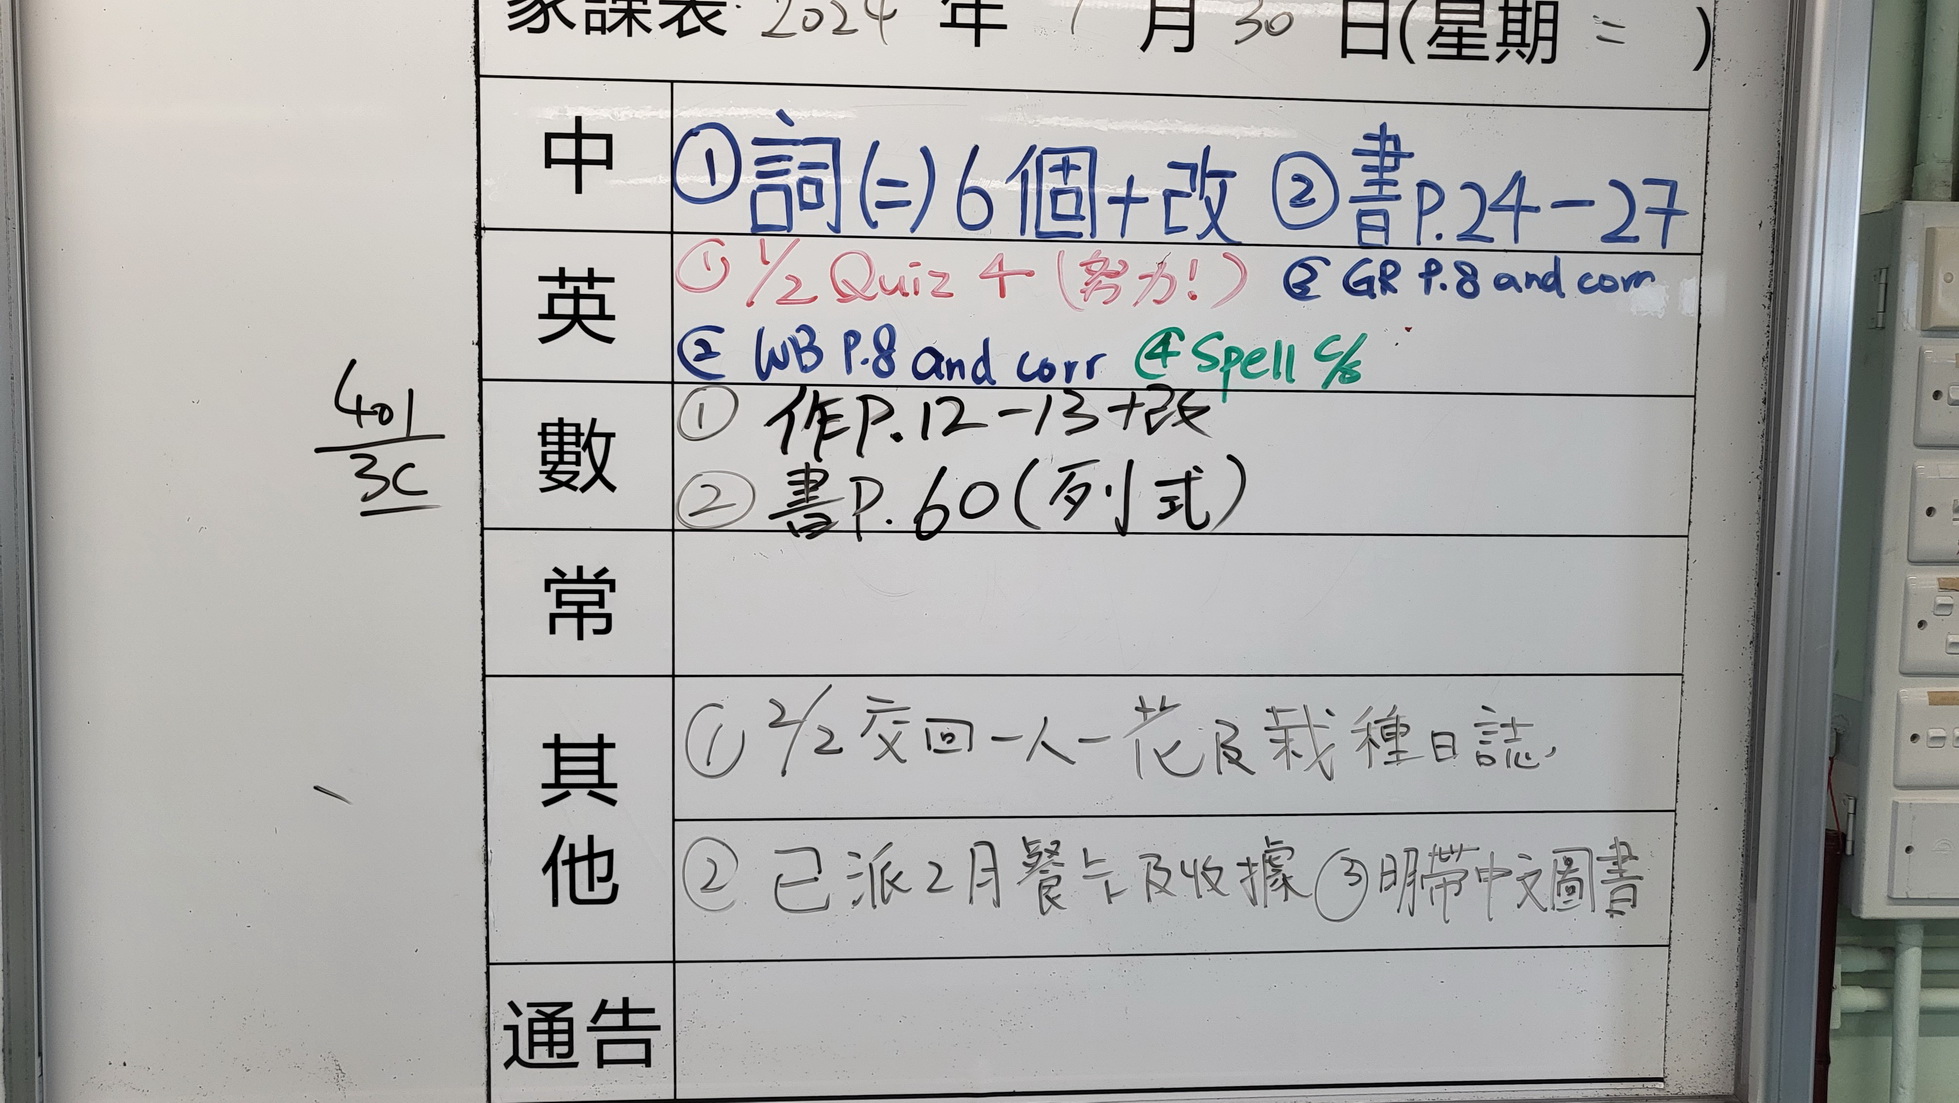 家課表 2024 年 1 月 30 日(星期 二 )
中
①詞(二)6個+改 ②書P.24-27
英
① 1/2 Quiz 4 (努力!) ③ GR P.8 and corr
② WB P.8 and corr ④ Spell C/S
401
3C
數
① 作P.12-13+改
② 書P.60(列式)
常
其他
① 2/2交回一人一花及栽種日誌.
② 已派2月餐卡及收據 ③明帶中文圖書
通告